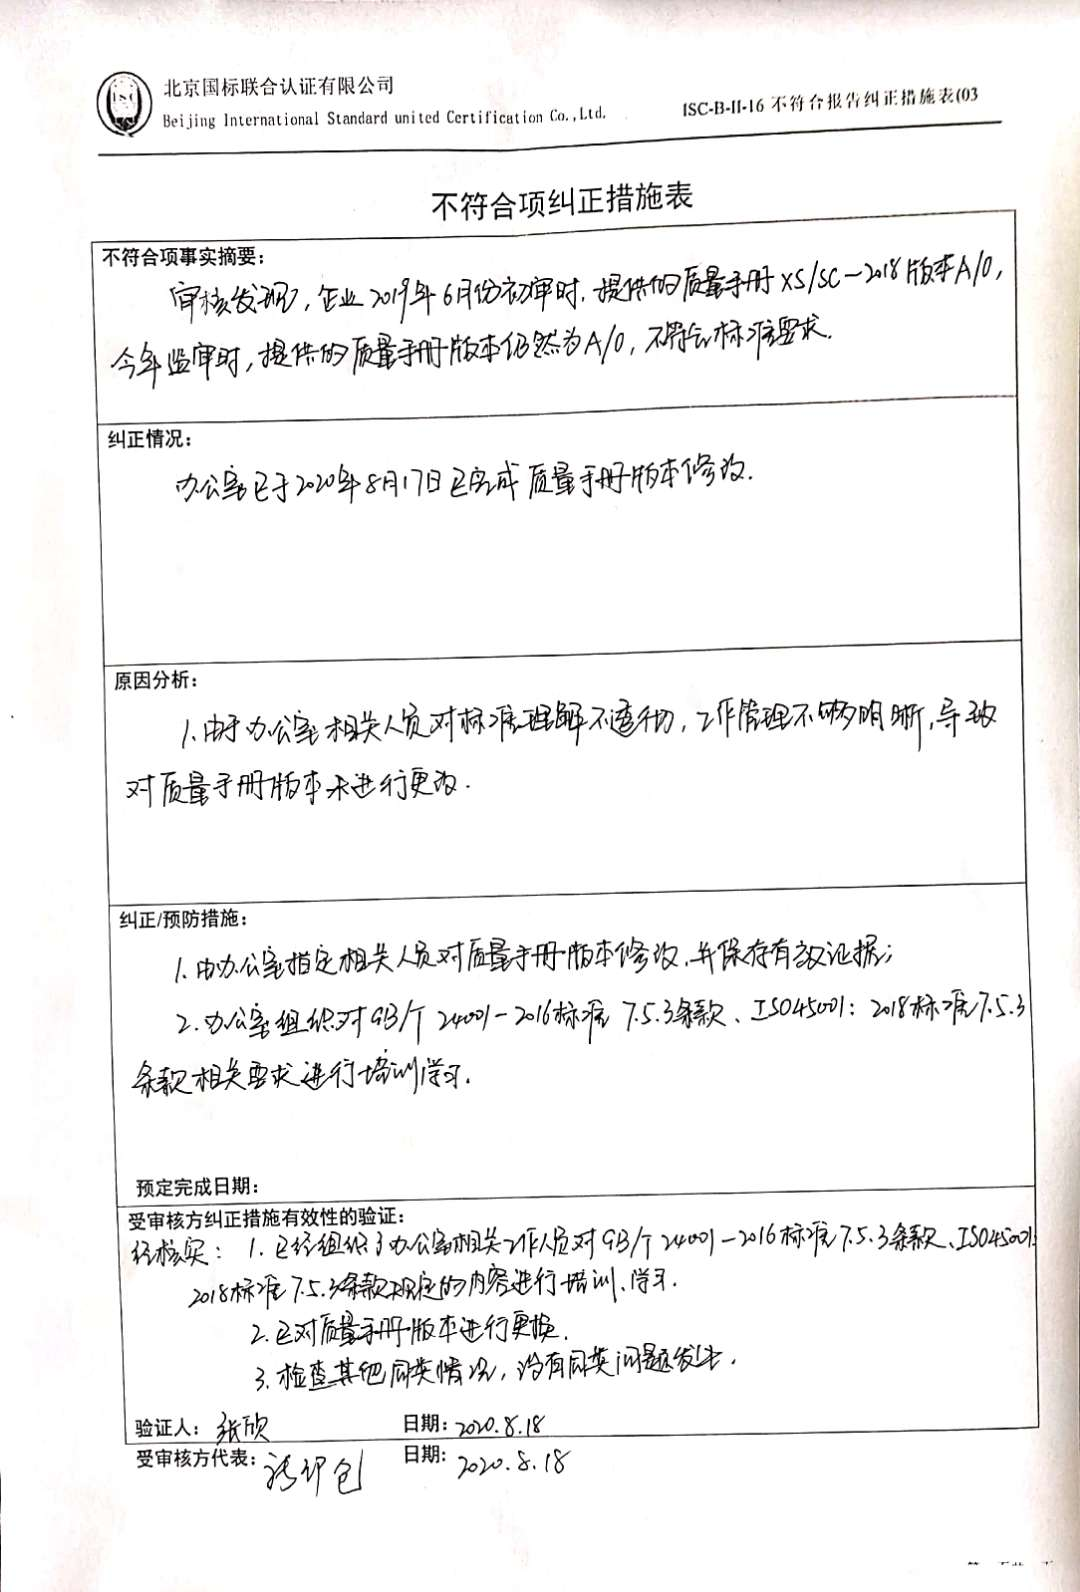 北京国标联合认证有限公司
Beijing International Standard united Certification Co.,Ltd.
ISC-B-II-16 不符合报告纠正措施表(03
不符合项纠正措施表
不符合项事实摘要:
审核发现,企业2019年6月份初审时,提供的质量手册XS/SC-2018版本A/0,
今年监审时,提供的质量手册版本仍然为A/0,不符合标准要求.
纠正情况:
办公室已于2020年8月17日已完成质量手册版本修改.
原因分析:
1.由于办公室相关人员对标准理解不透彻,工作管理不够明晰,导致
对质量手册版本未进行更改.
纠正/预防措施:
1.由办公室指定相关人员对质量手册版本修改,并保存有效证据;
2.办公室组织对GB/T 24001-2016标准7.5.3条款、ISO45001:2018标准7.5.3
条款相关要求进行培训学习.
预定完成日期:
受审核方纠正措施有效性的验证:
经核实:1.已经组织了办公室相关工作人员对GB/T 24001-2016标准7.5.3条款、ISO45001:
2018标准7.5.3条款规定的内容进行培训、学习.
2.已对质量手册版本进行更换.
3.检查其他同类情况,没有同类问题发生.
验证人: 张欣 日期: 2020.8.18
受审核方代表: 日期: 2020.8.18